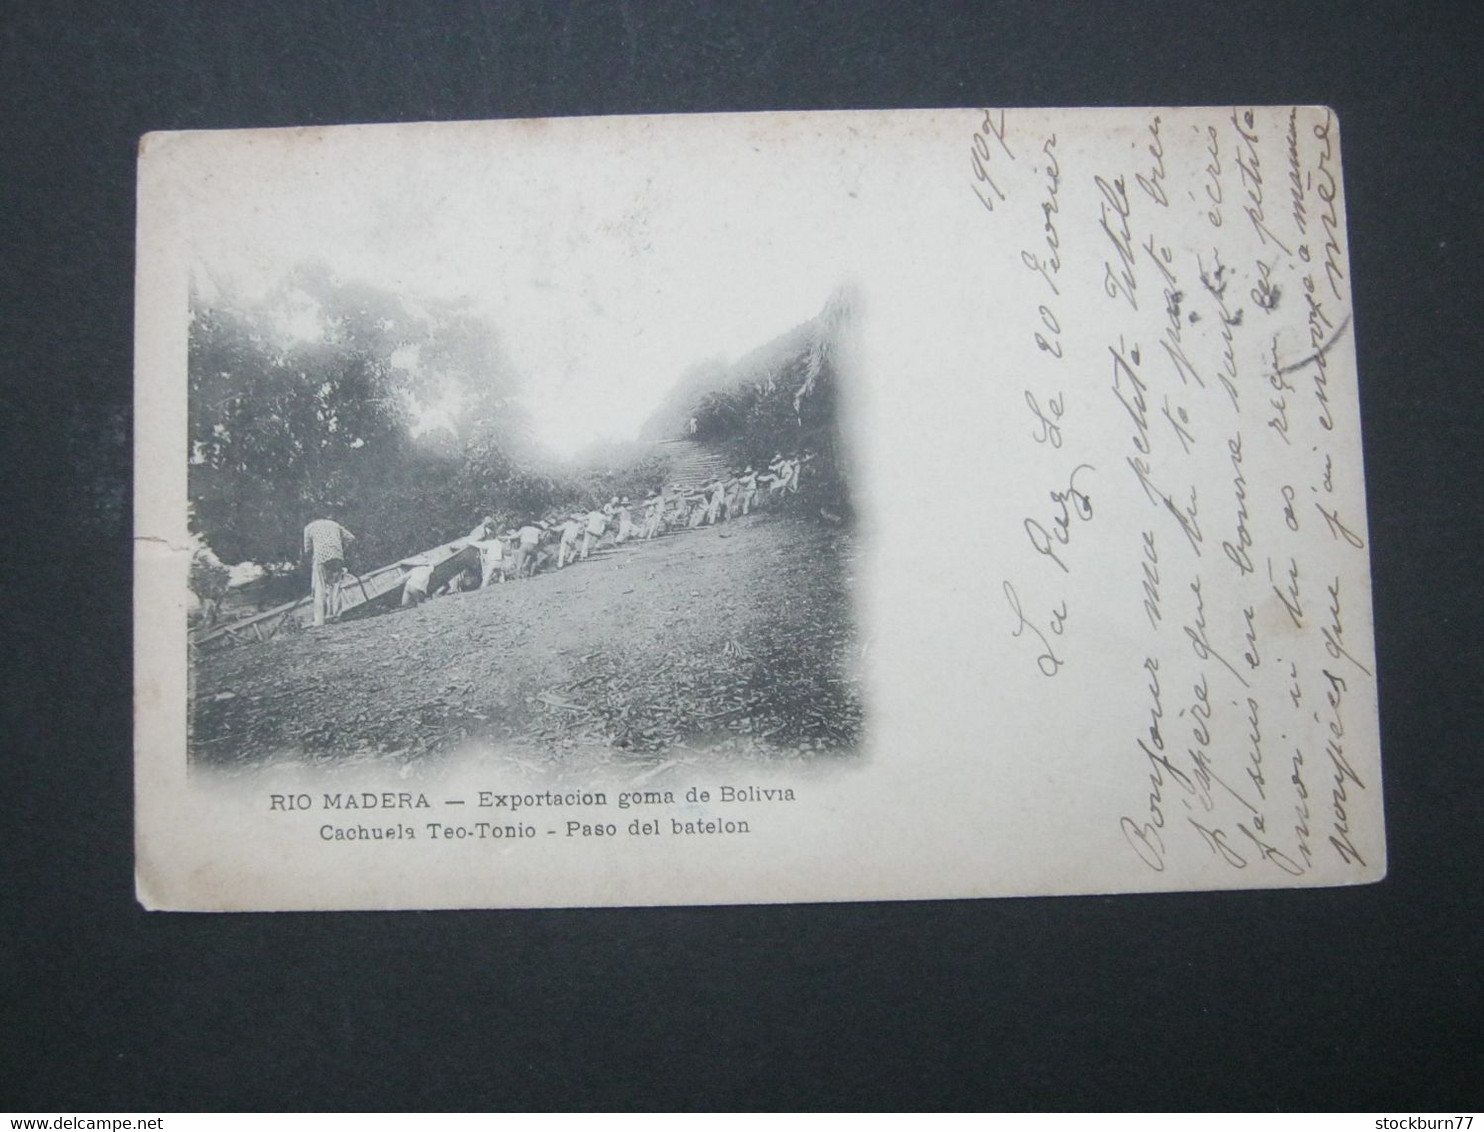 RIO MADERA — Exportacion goma de Bolivia
Cachuela Teo-Tonio - Paso del batelon
1907
La Paz le 20 Fevrier
Bonjour ma petite Titile
J'éspère que tu te porte bien
Je suis en bonne santé écris
moi si tu as reçu les petite
poupées que j'ai envoyé à maman
mère
stockburn77